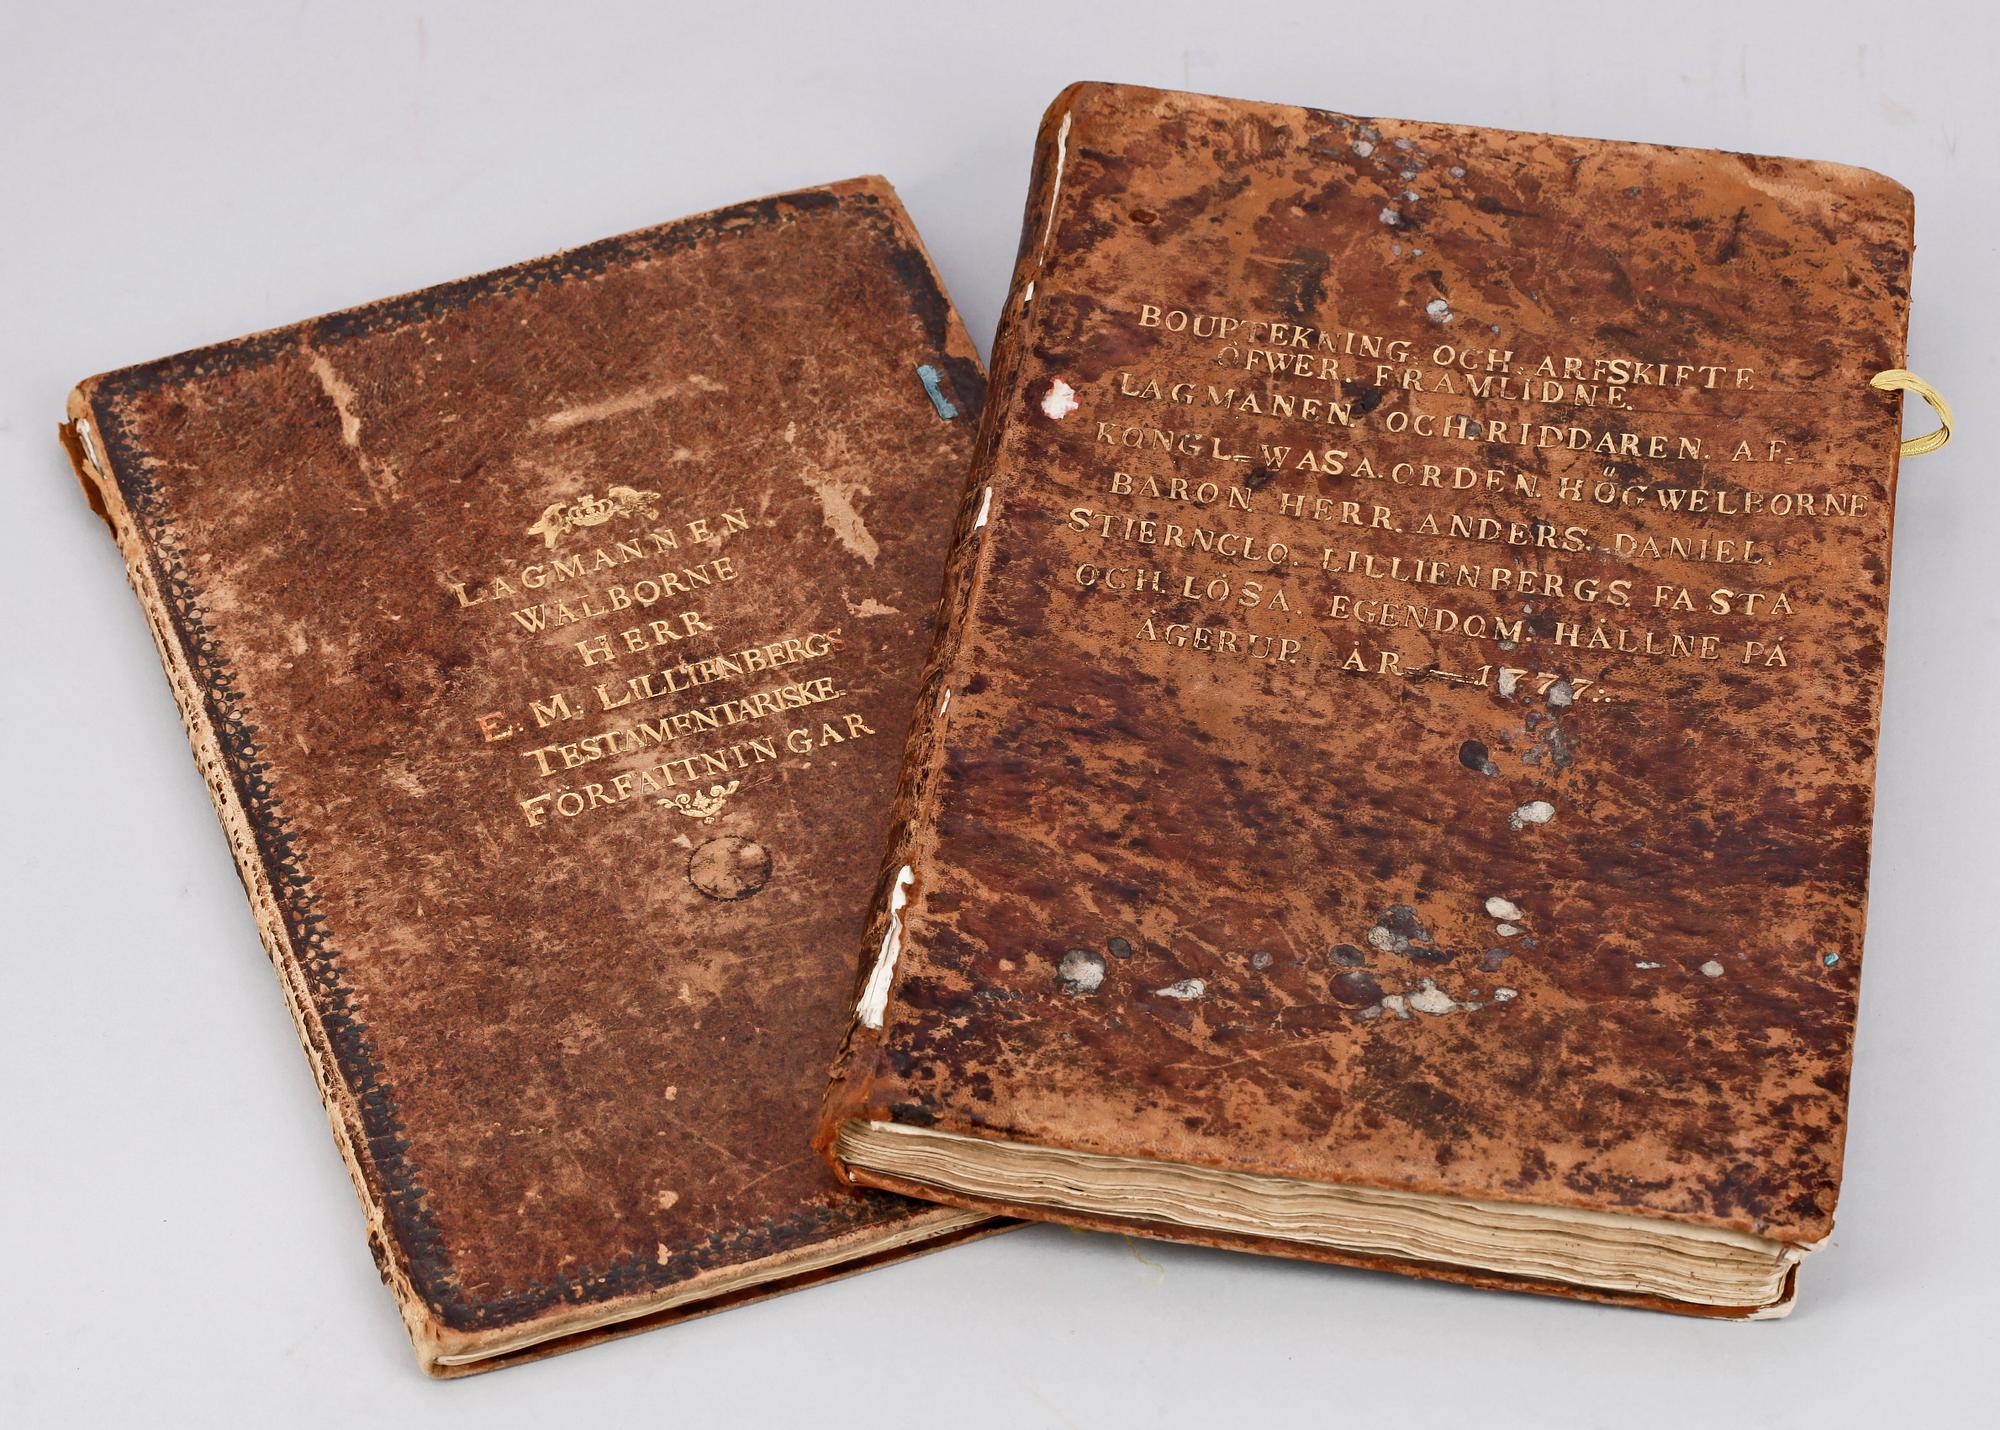 LAGMANNEN
WÄLBORNE
HERR
E. M. LILLIENBERGS
TESTAMENTARISKE.
FÖRFATTNINGAR
BOUPTEKNING. OCH. ARFSKIFTE
ÖFWER. FRAMLIDNE.
LAGMANEN. OCH. RIDDAREN. AF.
KONGL. WASA. ORDEN. HÖGWELBORNE
BARON. HERR. ANDERS. DANIEL.
STIERNCLO. LILLIENBERGS. FASTA
OCH. LÖSA. EGENDOM. HÅLLNE PÅ
ÅGERUP. ÅR — 1777:.